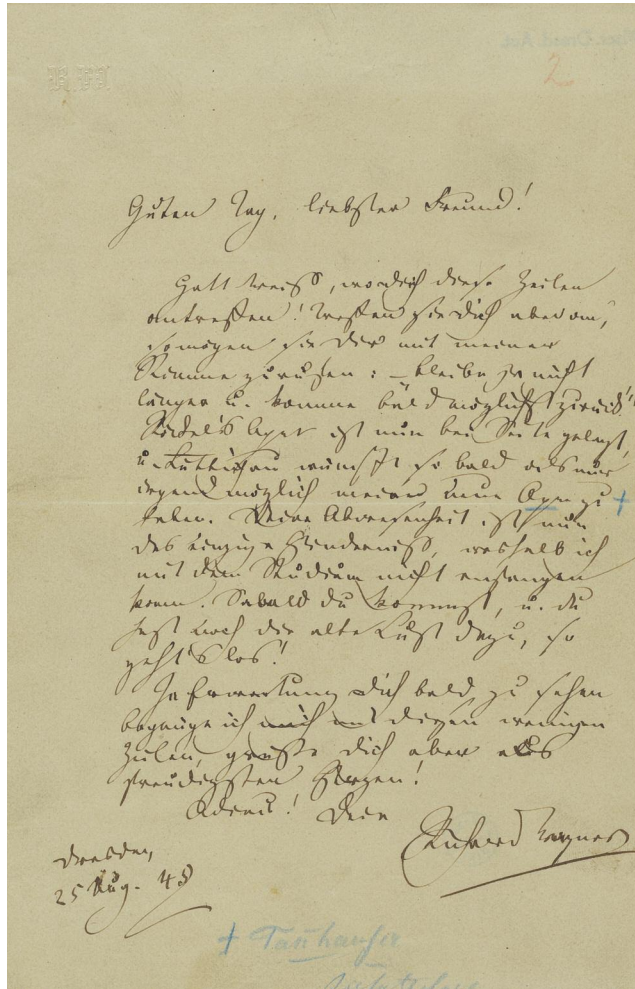 2
Guten Tag, liebster Freund!
Gott weiss, wo dich diese Zeilen
antreffen! Treffen sie dich aber an,
so mögen sie dir mit meiner
Stimme zurufen: – bleibe ja nicht
länger u. komme bald möglichst zurück!
Oper ist nun bei Seite gelegt,
u. Lüttichau wünscht so bald als nur
irgend möglich meine neue Oper zu +
geben. Deine Abwesenheit ist nun
das einzige Hinderniss, weshalb ich
mit dem Studium nicht anfangen
kann. Sobald du kommst, u. du
hast noch die alte Lust dazu, so
geht's los!
In Erwartung dich bald zu sehen
begnüge ich mich mit diesen wenigen
Zeilen, grüße dich aber aus
freudigsten Herzen!
Adieu! Dein
Richard Wagner
Dresden,
25 Aug. 45
+ Tannhauser